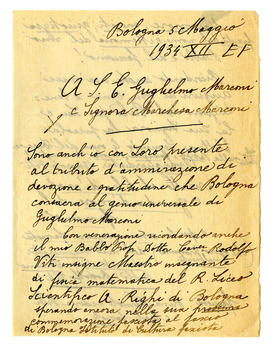 Bologna 5 Maggio
1934 XII E F
A S. E. Guglielmo Marconi
e Signora Marchesa Marconi
Sono anch'io con Loro presente
al tributo d'ammirazione di
devozione e gratitudine che Bologna
consacra al genio universale di
Guglielmo Marconi
Con venerazione ricordando anche
il mio Babbo Prof. Dottor Cavr Rodolfo
Viti insigne Maestro insegnante
di fisica matematica del R. Liceo
Scientifico A. Righi di Bologna
sperando ancora nella sua
commemorazione
di Bologna Istituto di Cultura fascista